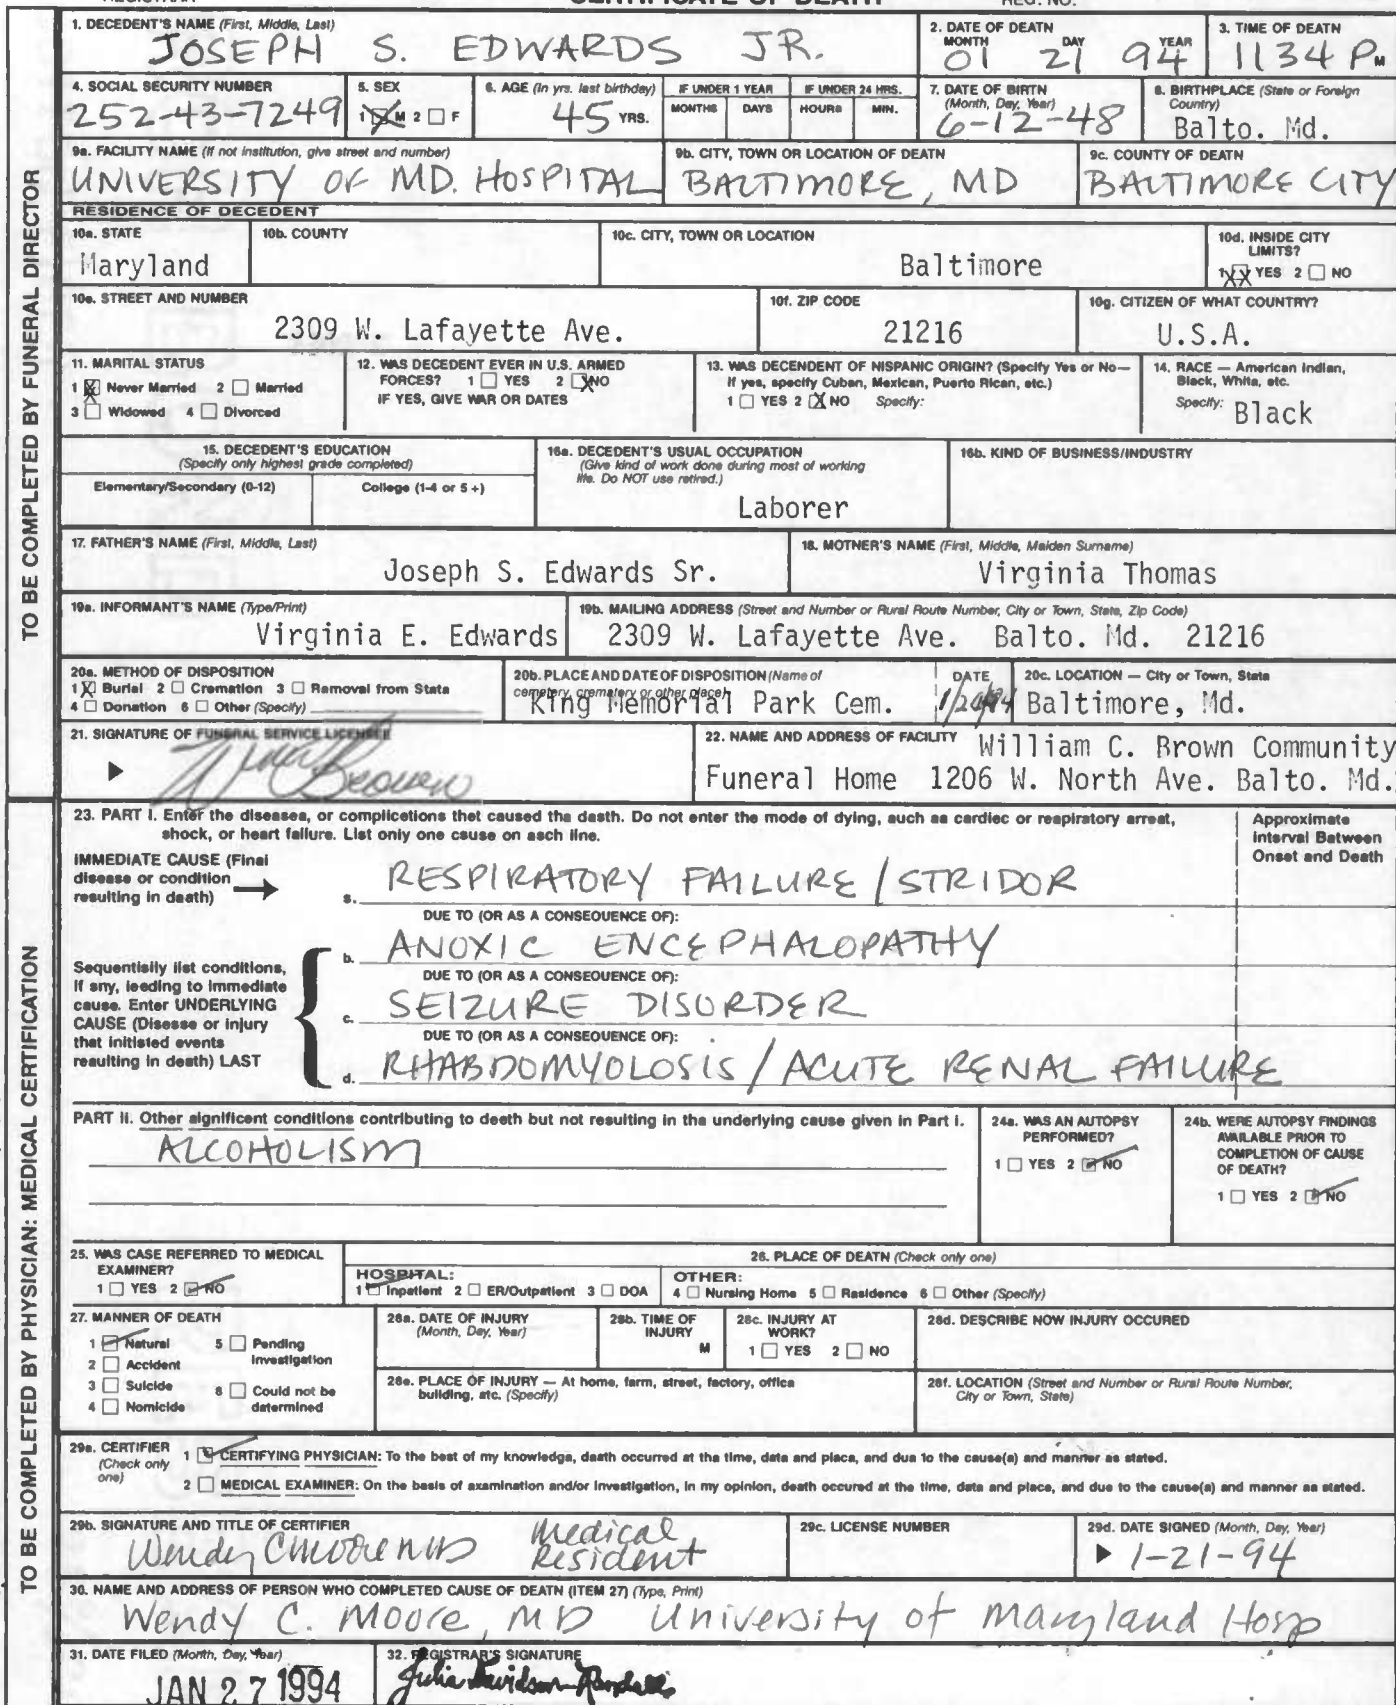 CERTIFICATE OF DEATH
1. DECEDENT'S NAME (First, Middle, Last)
JOSEPH S. EDWARDS JR.
2. DATE OF DEATH
MONTH DAY YEAR
01 21 94
3. TIME OF DEATH
1134 P M
4. SOCIAL SECURITY NUMBER
252-43-7249
5. SEX
1 M 2 F
6. AGE (In yrs. last birthday)
45 YRS.
IF UNDER 1 YEAR
MONTHS DAYS
IF UNDER 24 HRS.
HOURS MIN.
7. DATE OF BIRTH
(Month, Day, Year)
6-12-48
8. BIRTHPLACE (State or Foreign
Country)
Balto. Md.
9a. FACILITY NAME (If not institution, give street and number)
UNIVERSITY OF MD. HOSPITAL
9b. CITY, TOWN OR LOCATION OF DEATH
BALTIMORE, MD
9c. COUNTY OF DEATH
BALTIMORE CITY
TO BE COMPLETED BY FUNERAL DIRECTOR
RESIDENCE OF DECEDENT
10a. STATE
Maryland
10b. COUNTY
10c. CITY, TOWN OR LOCATION
Baltimore
10d. INSIDE CITY
LIMITS?
1 XX YES 2 NO
10e. STREET AND NUMBER
2309 W. Lafayette Ave.
10f. ZIP CODE
21216
10g. CITIZEN OF WHAT COUNTRY?
U.S.A.
11. MARITAL STATUS
1 X Never Married 2 Married
3 Widowed 4 Divorced
12. WAS DECEDENT EVER IN U.S. ARMED
FORCES? 1 YES 2 X NO
IF YES, GIVE WAR OR DATES
13. WAS DECENDENT OF NISPANIC ORIGIN? (Specify Yes or No—
If yes, specify Cuban, Mexican, Puerto Rican, etc.)
1 YES 2 X NO Specify:
14. RACE — American Indian,
Black, White, etc.
Specify: Black
15. DECEDENT'S EDUCATION
(Specify only highest grade completed)
Elementary/Secondary (0-12) College (1-4 or 5+)
16a. DECEDENT'S USUAL OCCUPATION
(Give kind of work done during most of working
life. Do NOT use retired.)
Laborer
16b. KIND OF BUSINESS/INDUSTRY
17. FATHER'S NAME (First, Middle, Last)
Joseph S. Edwards Sr.
18. MOTNER'S NAME (First, Middle, Maiden Surname)
Virginia Thomas
19a. INFORMANT'S NAME (Type/Print)
Virginia E. Edwards
19b. MAILING ADDRESS (Street and Number or Rural Route Number, City or Town, State, Zip Code)
2309 W. Lafayette Ave. Balto. Md. 21216
20a. METHOD OF DISPOSITION
1 X Burial 2 Cremation 3 Removal from State
4 Donation 6 Other (Specify)
20b. PLACE AND DATE OF DISPOSITION (Name of
cemetery, crematory or other place)
King Memorial Park Cem.
DATE
20c. LOCATION — City or Town, State
Baltimore, Md.
21. SIGNATURE OF FUNERAL SERVICE LICENSEE
Brown
22. NAME AND ADDRESS OF FACILITY William C. Brown Community
Funeral Home 1206 W. North Ave. Balto. Md.
TO BE COMPLETED BY PHYSICIAN: MEDICAL CERTIFICATION
23. PART I. Enter the diseases, or complications that caused the death. Do not enter the mode of dying, such as cardiac or respiratory arrest,
shock, or heart failure. List only one cause on each line.
Approximate
Interval Between
Onset and Death
IMMEDIATE CAUSE (Final
disease or condition
resulting in death)
a. RESPIRATORY FAILURE / STRIDOR
DUE TO (OR AS A CONSEQUENCE OF):
b. ANOXIC ENCEPHALOPATHY
DUE TO (OR AS A CONSEQUENCE OF):
Sequentially list conditions,
if any, leading to immediate
cause. Enter UNDERLYING
CAUSE (Disease or injury
that initiated events
resulting in death) LAST
c. SEIZURE DISORDER
DUE TO (OR AS A CONSEQUENCE OF):
d. RHABDOMYOLOSIS / ACUTE RENAL FAILURE
PART II. Other significant conditions contributing to death but not resulting in the underlying cause given in Part I.
ALCOHOLISM
24a. WAS AN AUTOPSY
PERFORMED?
1 YES 2 NO
24b. WERE AUTOPSY FINDINGS
AVAILABLE PRIOR TO
COMPLETION OF CAUSE
OF DEATH?
1 YES 2 NO
25. WAS CASE REFERRED TO MEDICAL
EXAMINER?
1 YES 2 NO
26. PLACE OF DEATH (Check only one)
HOSPITAL:
1 Inpatient 2 ER/Outpatient 3 DOA
OTHER:
4 Nursing Home 5 Residence 6 Other (Specify)
27. MANNER OF DEATH
1 Natural 5 Pending
Investigation
2 Accident
3 Suicide 6 Could not be
determined
4 Nomicide
28a. DATE OF INJURY
(Month, Day, Year)
28b. TIME OF
INJURY
M
28c. INJURY AT
WORK?
1 YES 2 NO
28d. DESCRIBE NOW INJURY OCCURED
28e. PLACE OF INJURY — At home, farm, street, factory, office
building, etc. (Specify)
28f. LOCATION (Street and Number or Rural Route Number,
City or Town, State)
29a. CERTIFIER
(Check only
one)
1 CERTIFYING PHYSICIAN: To the best of my knowledge, death occurred at the time, date and place, and due to the cause(s) and manner as stated.
2 MEDICAL EXAMINER: On the basis of examination and/or investigation, in my opinion, death occured at the time, date and place, and due to the cause(s) and manner as stated.
29b. SIGNATURE AND TITLE OF CERTIFIER
Wendy C Moore MD Medical
Resident
29c. LICENSE NUMBER
29d. DATE SIGNED (Month, Day, Year)
1-21-94
30. NAME AND ADDRESS OF PERSON WHO COMPLETED CAUSE OF DEATH (ITEM 27) (Type, Print)
Wendy C. Moore, MD University of Maryland Hosp
31. DATE FILED (Month, Day, Year)
JAN 27 1994
32. REGISTRAR'S SIGNATURE
Julia Davidson-Randall